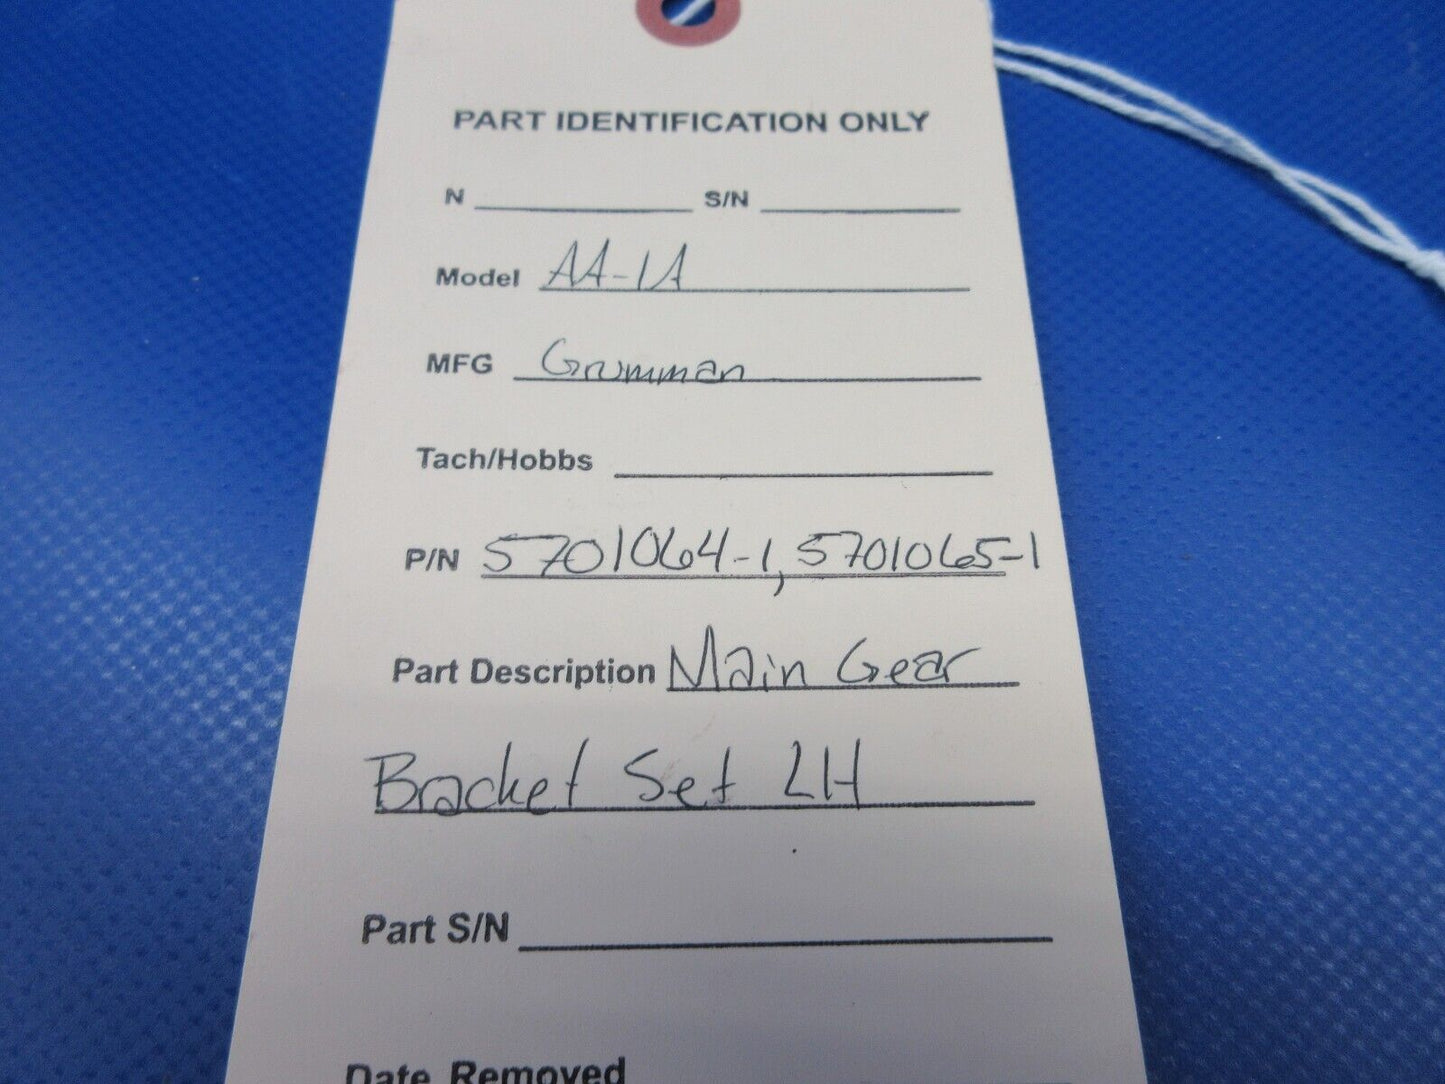 PART IDENTIFICATION ONLY
N S/N
Model AA-1A
MFG Grumman
Tach/Hobbs
P/N 5701064-1, 5701065-1
Part Description Main Gear
Bracket Set LH
Part S/N
Date Removed